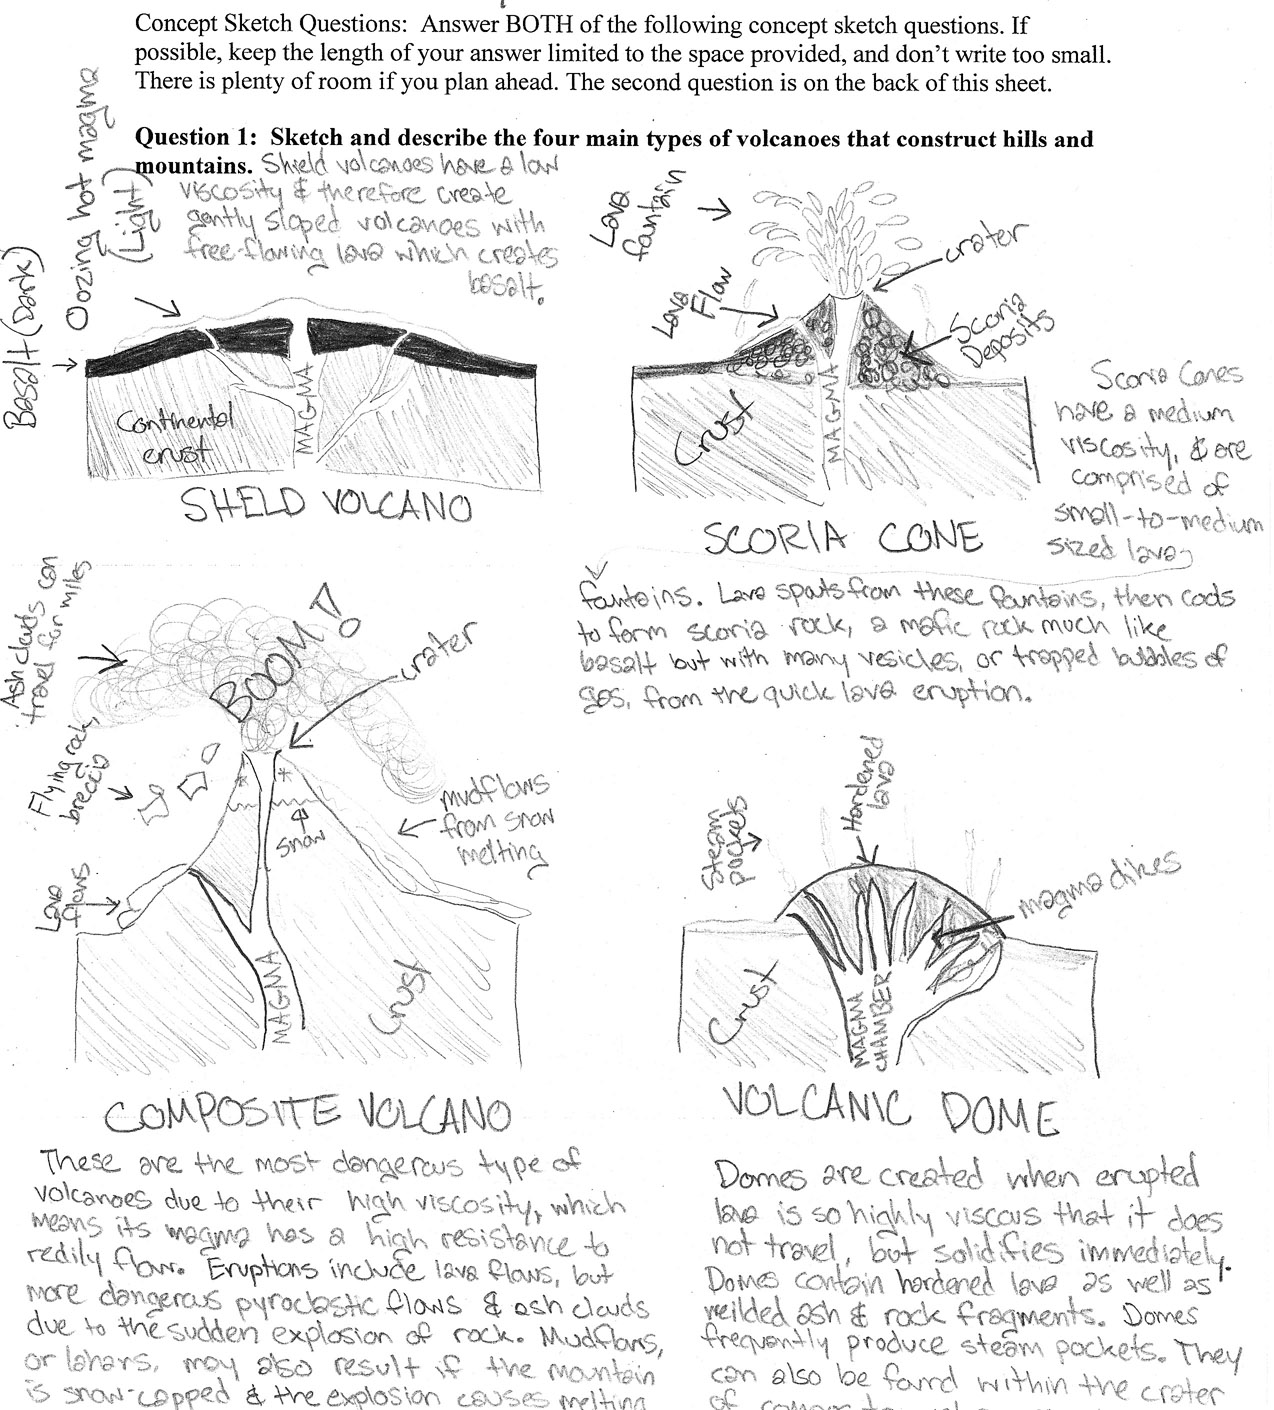 Concept Sketch Questions: Answer BOTH of the following concept sketch questions. If
possible, keep the length of your answer limited to the space provided, and don't write too small.
There is plenty of room if you plan ahead. The second question is on the back of this sheet.
Question 1: Sketch and describe the four main types of volcanoes that construct hills and
mountains.
Shield volcanoes have a low
viscosity & therefore create
gently sloped volcanoes with
free-flowing lava which creates
basalt.
Oozing hot magma
(Light)
Basalt (Dark)
Continental
crust
MAGMA
SHELD VOLCANO
Lava
fountain
crater
Lava
Flow
Scoria
Deposits
Crust
MAGMA
SCORIA CONE
Scoria Cones
have a medium
viscosity, & are
comprised of
small-to-medium
sized lava
fountains. Lava spouts from these fountains, then cools
to form scoria rock, a mafic rock much like
basalt but with many vesicles, or trapped bubbles of
gas, from the quick lava eruption.
Ash clouds can
travel for miles
BOOM!
crater
Flying rock,
breccia
snow
mudflows
from snow
melting
Lava
flows
MAGMA
Crust
COMPOSITE VOLCANO
These are the most dangerous type of
volcanoes due to their high viscosity, which
means its magma has a high resistance to
redily flow. Eruptions include lava flows, but
more dangerous pyroclastic flows & ash clouds
due to the sudden explosion of rock. Mudflows,
or lahars, may also result if the mountain
is snow-capped & the explosion causes melting
Steam
pockets
Hardened
lava
magma dikes
Crust
MAGMA
CHAMBER
VOLCANIC DOME
Domes are created when erupted
lava is so highly viscous that it does
not travel, but solidifies immediately.
Domes contain hardened lava as well as
welded ash & rock fragments. Domes
frequently produce steam pockets. They
can also be found within the crater
of